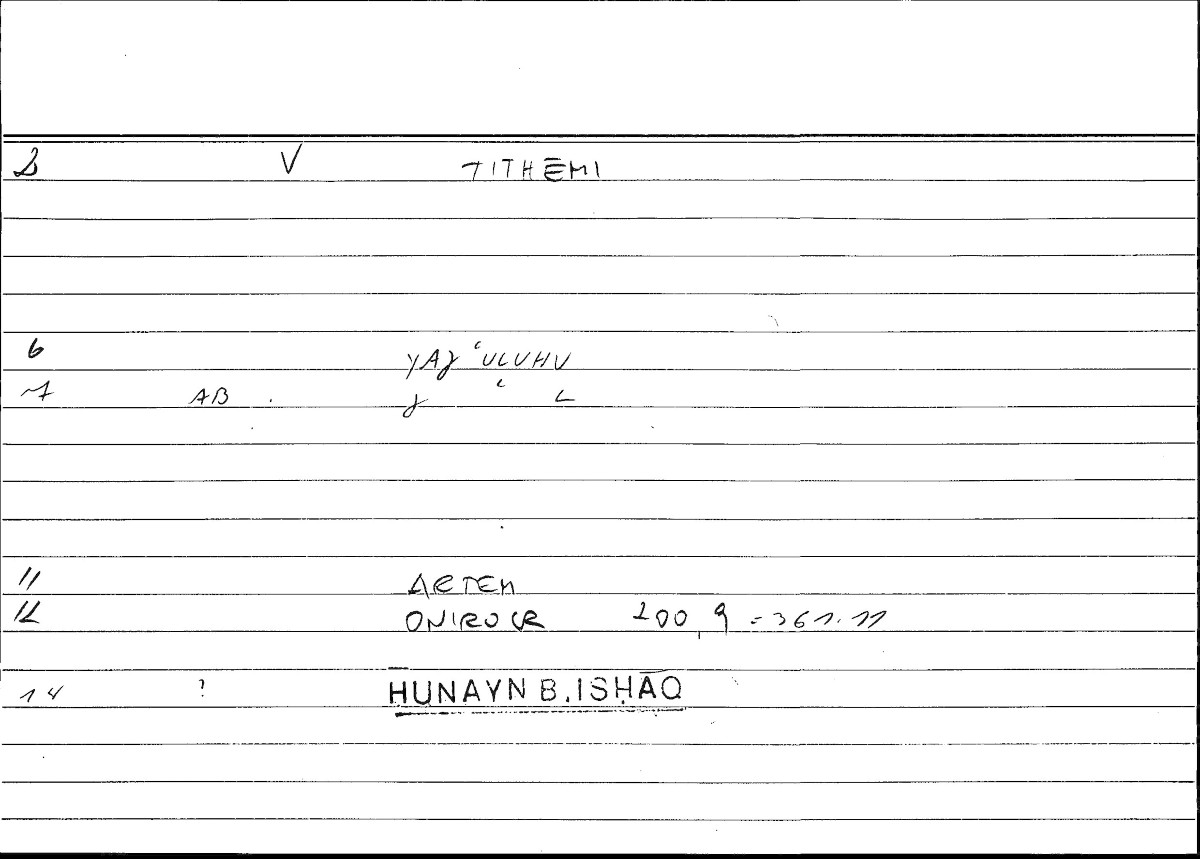 2 V TITHEMI
6 YAJ ʿULUHU
7 AB . J ʿ L
11 ARTEM
12 ONIROCR 200,9 = 361.11
14 ? HUNAYN B. ISḤĀQ